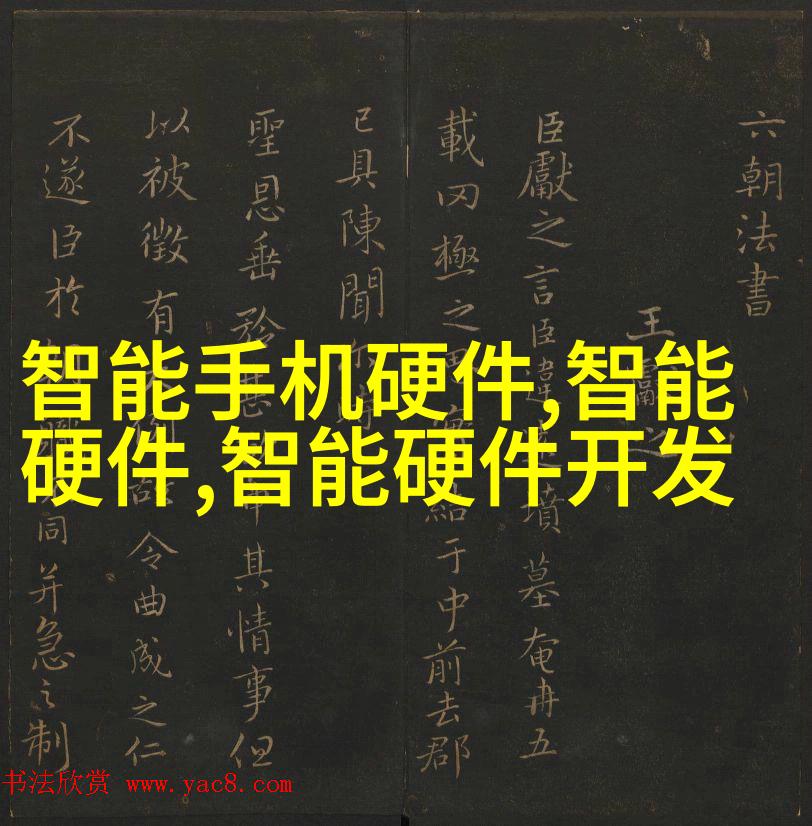 六朝法書
王 之
臣獻之言臣違 墳墓奄冉五
載罔極之 于中前去郡
已具陳聞
聖恩垂矜 其情事但
以被徵有 令曲成之仁
不遂臣於 同并急之制
智能手机硬件,智能
硬件,智能硬件开发
书法欣赏 www.yac8.com